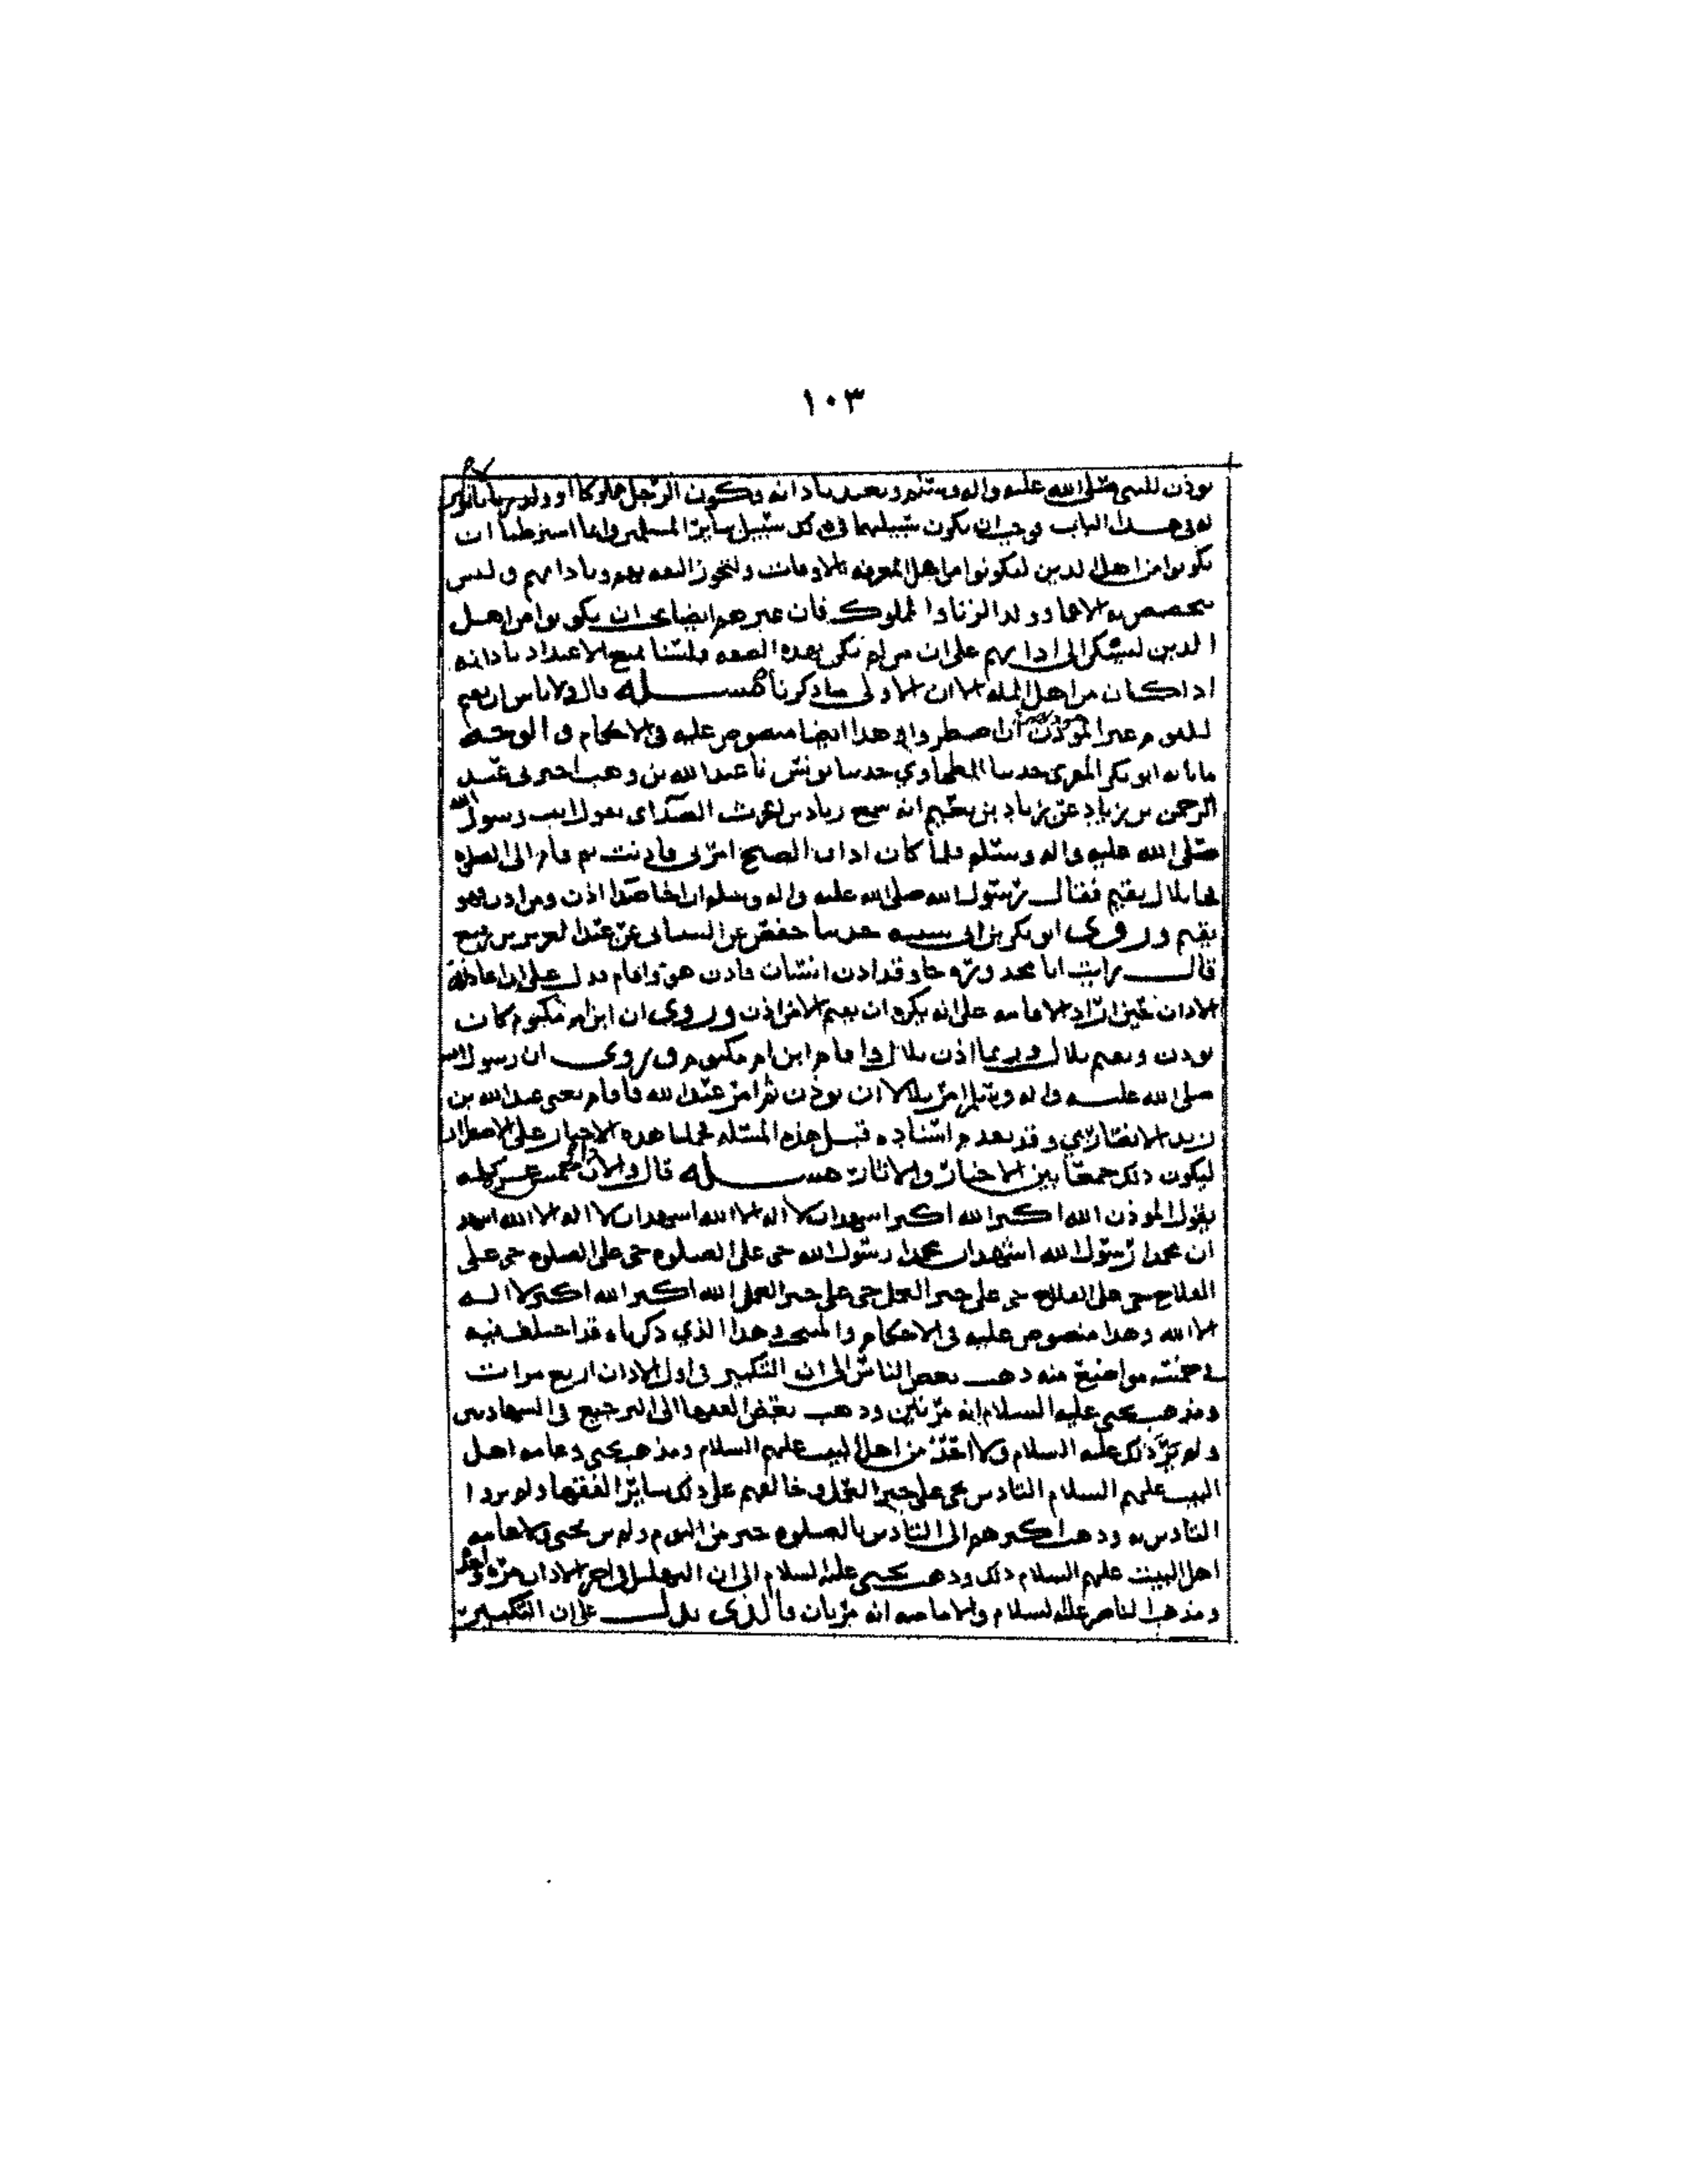 ١٠٣
يوذن للنبي صلى الله عليه واله وسلم ويعتد باذانه وكون الرجل مملوكا او ولد زنا لا تاثير
له في هذا الباب فوجب ان يكون سبيلهما في ذلك سبيل ساير المسلمين وانما اشترطنا ان
يكونوا من اهل الدين ليكونوا من اهل المعرفه بالاوقات ولتجوز الثقه بهم وباذانهم وليس
يختص به الاعما وولد الزنا والمملوك فان غيرهم ايضا يجب ان يكونوا من اهل
الدين ليسكن الى اذانهم على ان من لم يكن بهذه الصفه فلسنا نمنع الاعتداد باذانه
اذا كان من اهل المله الا ان الاولى ما ذكرنا مسله قال ولا باس ان يقيم
للقوم غير الموذن ان اضطروا الى هذا ايضا منصوص عليه في الاحكام والوجه
ما انا به ابو بكر المقري حدثنا الطحاوي حدثنا يونس نا عبد الله بن وهب اخبرني عبد
الرحمن بن زياد عن زياد بن نعيم انه سمع زياد بن الحرث الصدائي يقول اتيت رسول الله
صلى الله عليه واله وسلم فلما كان اذان الصبح امرني فاذنت ثم قام الى الصلوه
فجا بلال يقيم فقال رسول الله صلى الله عليه واله وسلم ان اخا صدا اذن ومن اذن فهو
يقيم وروى ابو بكر بن ابي شيبه حدثنا حفص عن الشيباني عن عبد العزيز بن رفيع
قال رايت ابا محذوره جا وقد اذن انسان فاذن هو واقام فدل على ان اعادته
الاذان حين اراد الاقامه على انه يكره ان يقيم الا من اذن وروى ان ابن ام مكتوم كان
يوذن ويقيم بلال وربما اذن بلال واقام ابن ام مكتوم وروى ان رسول الله
صلى الله عليه واله وسلم امر بلالا ان يوذن ثم امر عبد الله فاقام يعني عبد الله بن
زيد الانصاري وقد تقدم اسناده قبل هذه المسئله فحملنا هذه الاخبار على الاضطرار
ليكون ذلك جمعا بين الاخبار والاثار مسله قال والاذان خمس عشر كلمه
يقول الموذن الله اكبر الله اكبر اشهد ان لا اله الا الله اشهد ان لا اله الا الله اشهد
ان محمدا رسول الله اشهد ان محمدا رسول الله حي على الصلوه حي على الصلوه حي على
الفلاح حي على الفلاح حي على خير العمل حي على خير العمل الله اكبر الله اكبر لا اله
الا الله وهذا منصوص عليه في الاحكام والمنتخب وهذا الذي ذكرناه قد اختلف فيه
في خمسه مواضع منه ذهب بعض الناس الى ان التكبير في اول الاذان اربع مرات
ومذهب يحيى عليه السلام انه مرتين وذهب بعض الفقها الى الترجيع في الشهادتين
ولم ير ذلك عليه السلام ولا احد من اهل البيت عليهم السلام ومذهب يحيى وعامه اهل
البيت عليهم السلام التاذين بحي على خير العمل وخالفهم على ذلك ساير الفقها ولم يروا
التاذين به وذهب اكثرهم الى التاذين بالصلوه خير من النوم ولم ير يحيى ولا عامه
اهل البيت عليهم السلام ذلك وذهب يحيى عليه السلام الى ان التهليل في اخر الاذان مره واحده
ومذهب الناصر عليه السلام والاماميه انه مرتان فالذي يدل على ان التكبير